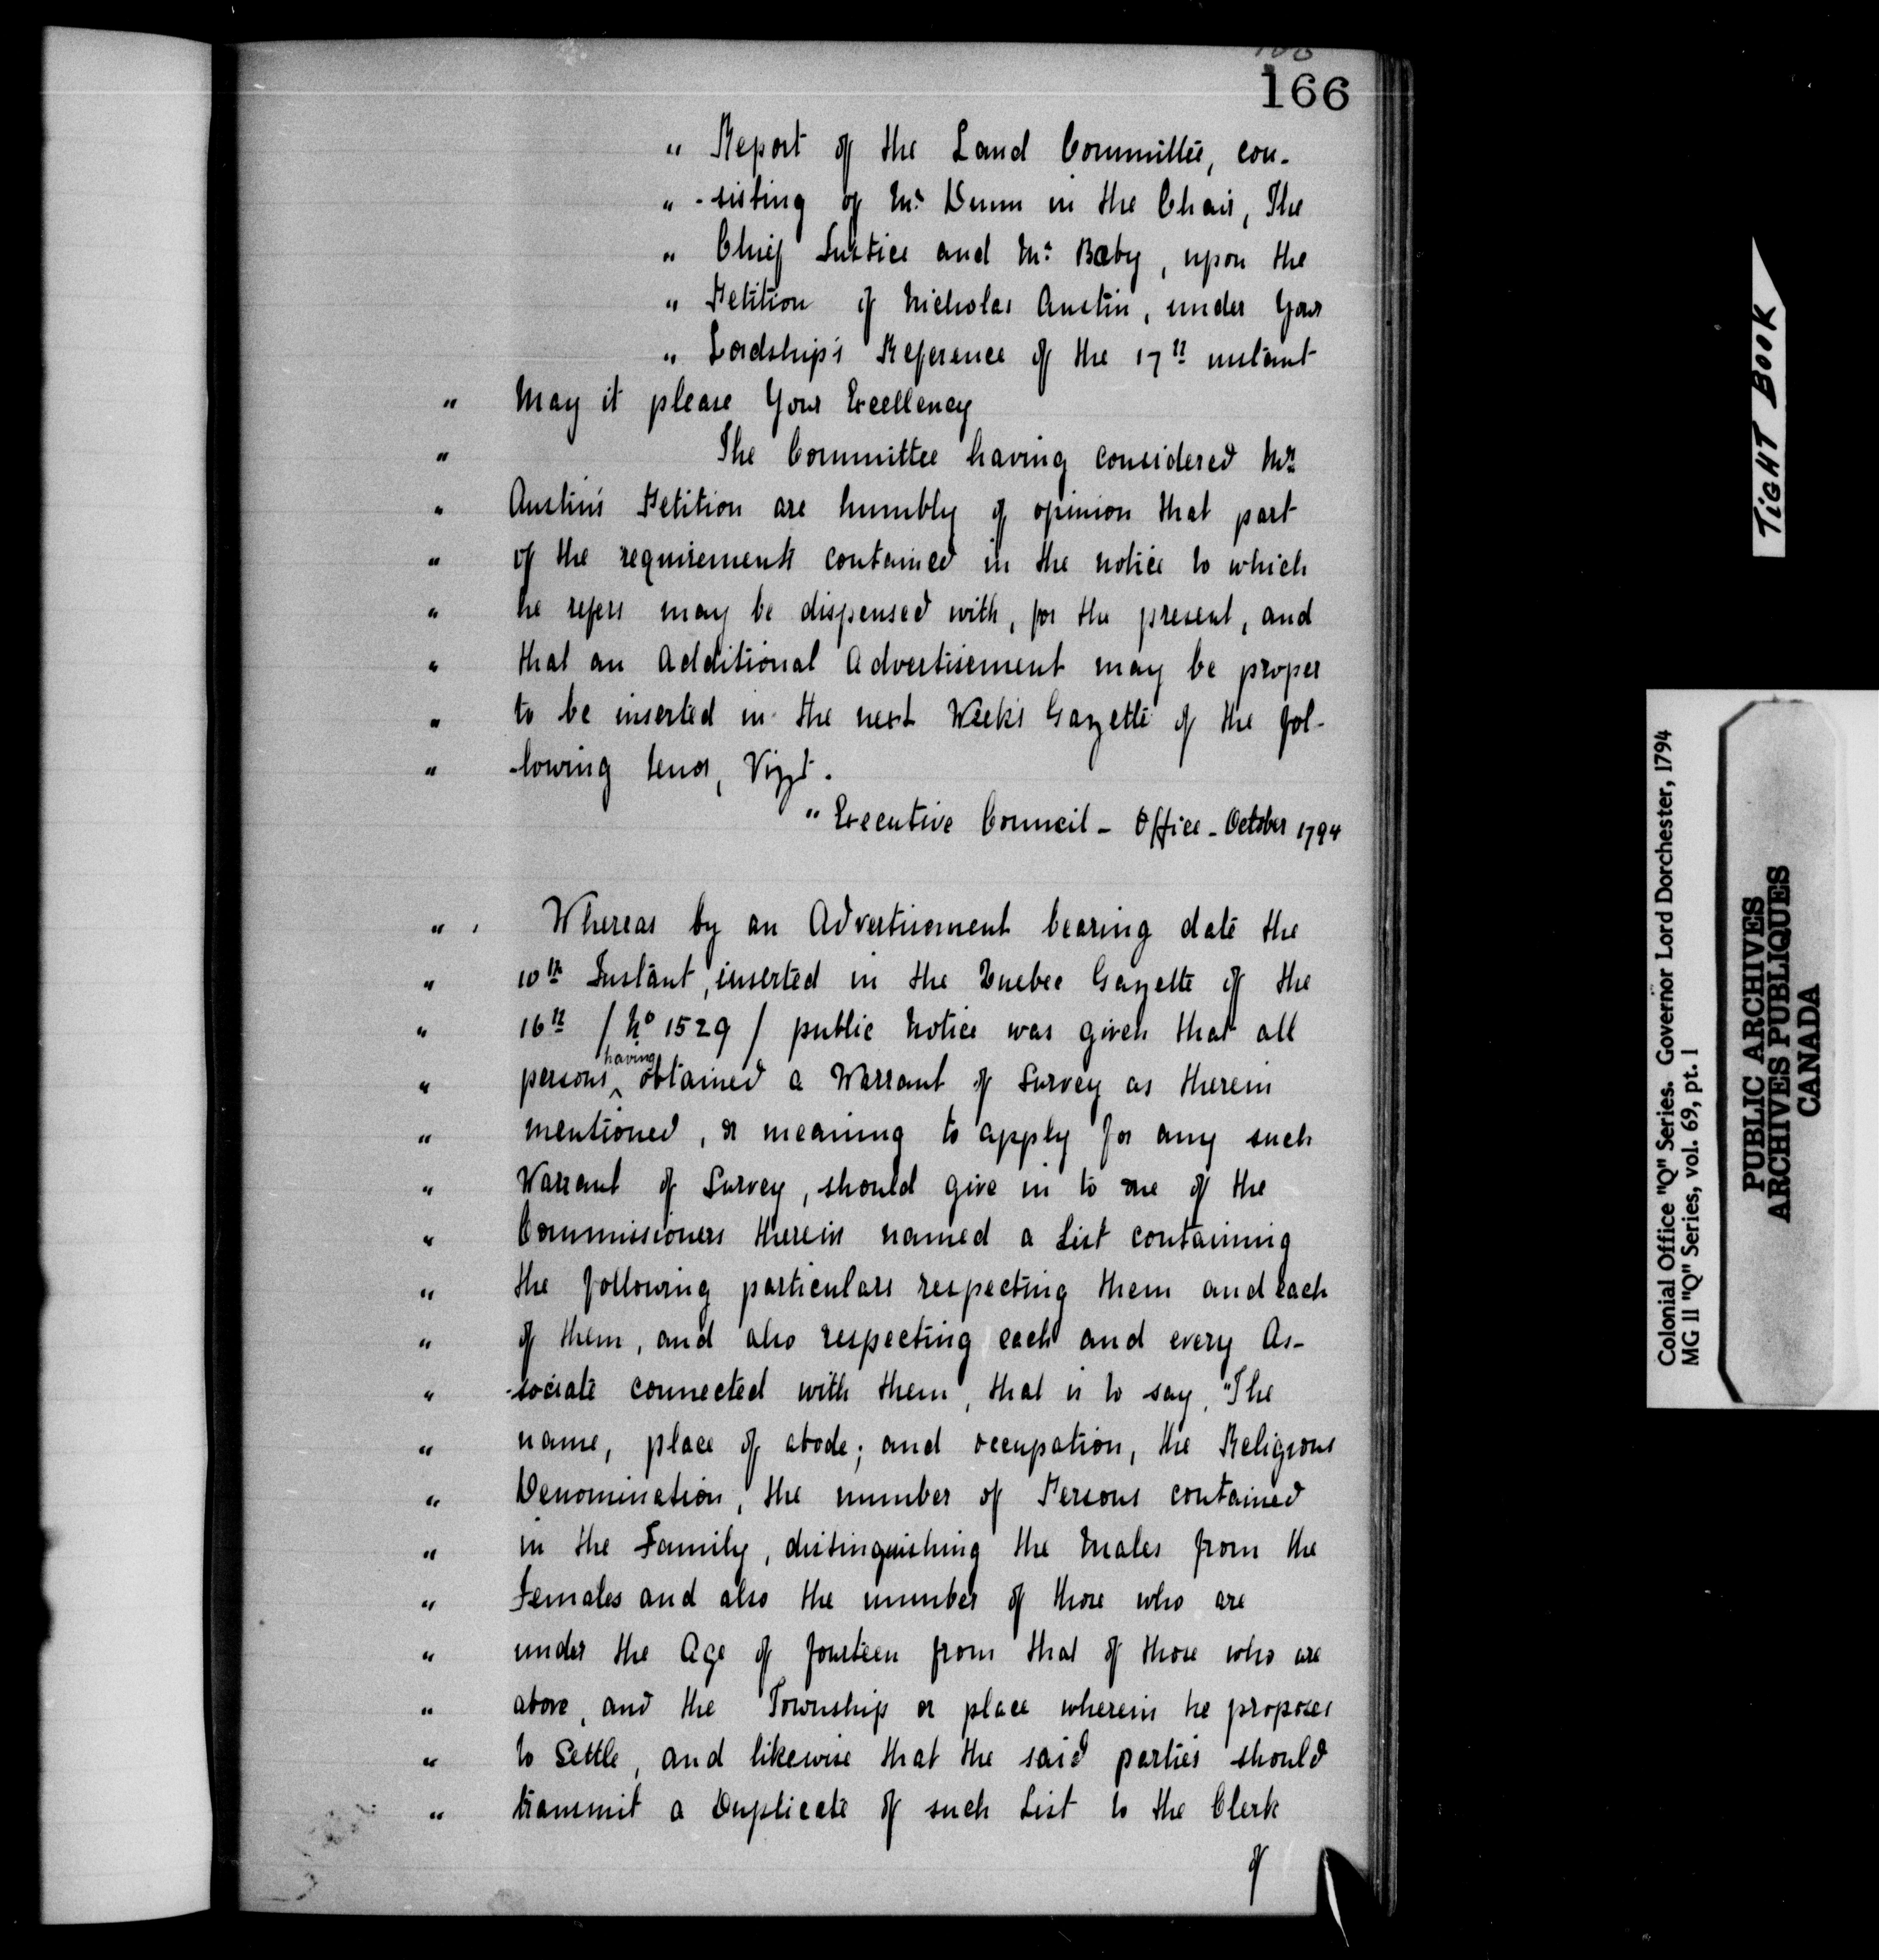 166
" Report of the Land Committee, con-
" -sisting of Mr Dunn in the Chair, The
" Chief Justice and Mr Baby, upon the
" Petition of Nicholas Austin, under Your
" Lordship's Reference of the 17th instant
" May it please Your Excellency
" The Committee having considered Mr
" Austin's Petition are humbly of opinion that part
" of the requirements contained in the notice to which
" he refers may be dispensed with, for the present, and
" that an Additional Advertisement may be proper
" to be inserted in the next Week's Gazette of the fol-
" -lowing tenor, Vizt.
" Executive Council - Office - October 1794
" Whereas by an Advertisement bearing date the
" 10th Instant, inserted in the Quebec Gazette of the
" 16th / No 1529 / public Notice was given that all
" persons having obtained a Warrant of Survey as therein
" mentioned, or meaning to apply for any such
" Warrant of Survey, should give in to one of the
" Commissioners therein named a List containing
" the following particulars respecting them and each
" of them, and also respecting each and every As-
" -sociate connected with them, that is to say, "The
" name, place of abode; and occupation, the Religious
" Denomination, the number of Persons contained
" in the Family, distinguishing the Males from the
" Females and also the number of those who are
" under the Age of fourteen from that of those who are
" above, and the Township or place wherein he proposes
" to Settle, and likewise that the said parties should
" transmit a Duplicate of such List to the Clerk
of
TIGHT BOOK
Colonial Office "Q" Series. Governor Lord Dorchester, 1794
MG 11 "Q" Series, vol. 69, pt. 1
PUBLIC ARCHIVES
ARCHIVES PUBLIQUES
CANADA